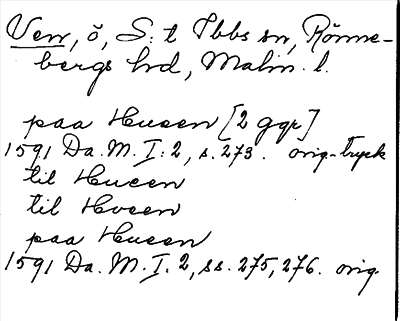 Ven, ö, S:t Ibbs sn, Rönne-
bergs hd, Malm. l.
paa Hueen [2 ggr]
1591 Da. M. I: 2, s. 273. orig.-tryck
til Hueen
til Hveen
paa Hueen
1591 Da. M. I. 2, ss. 275, 276. orig